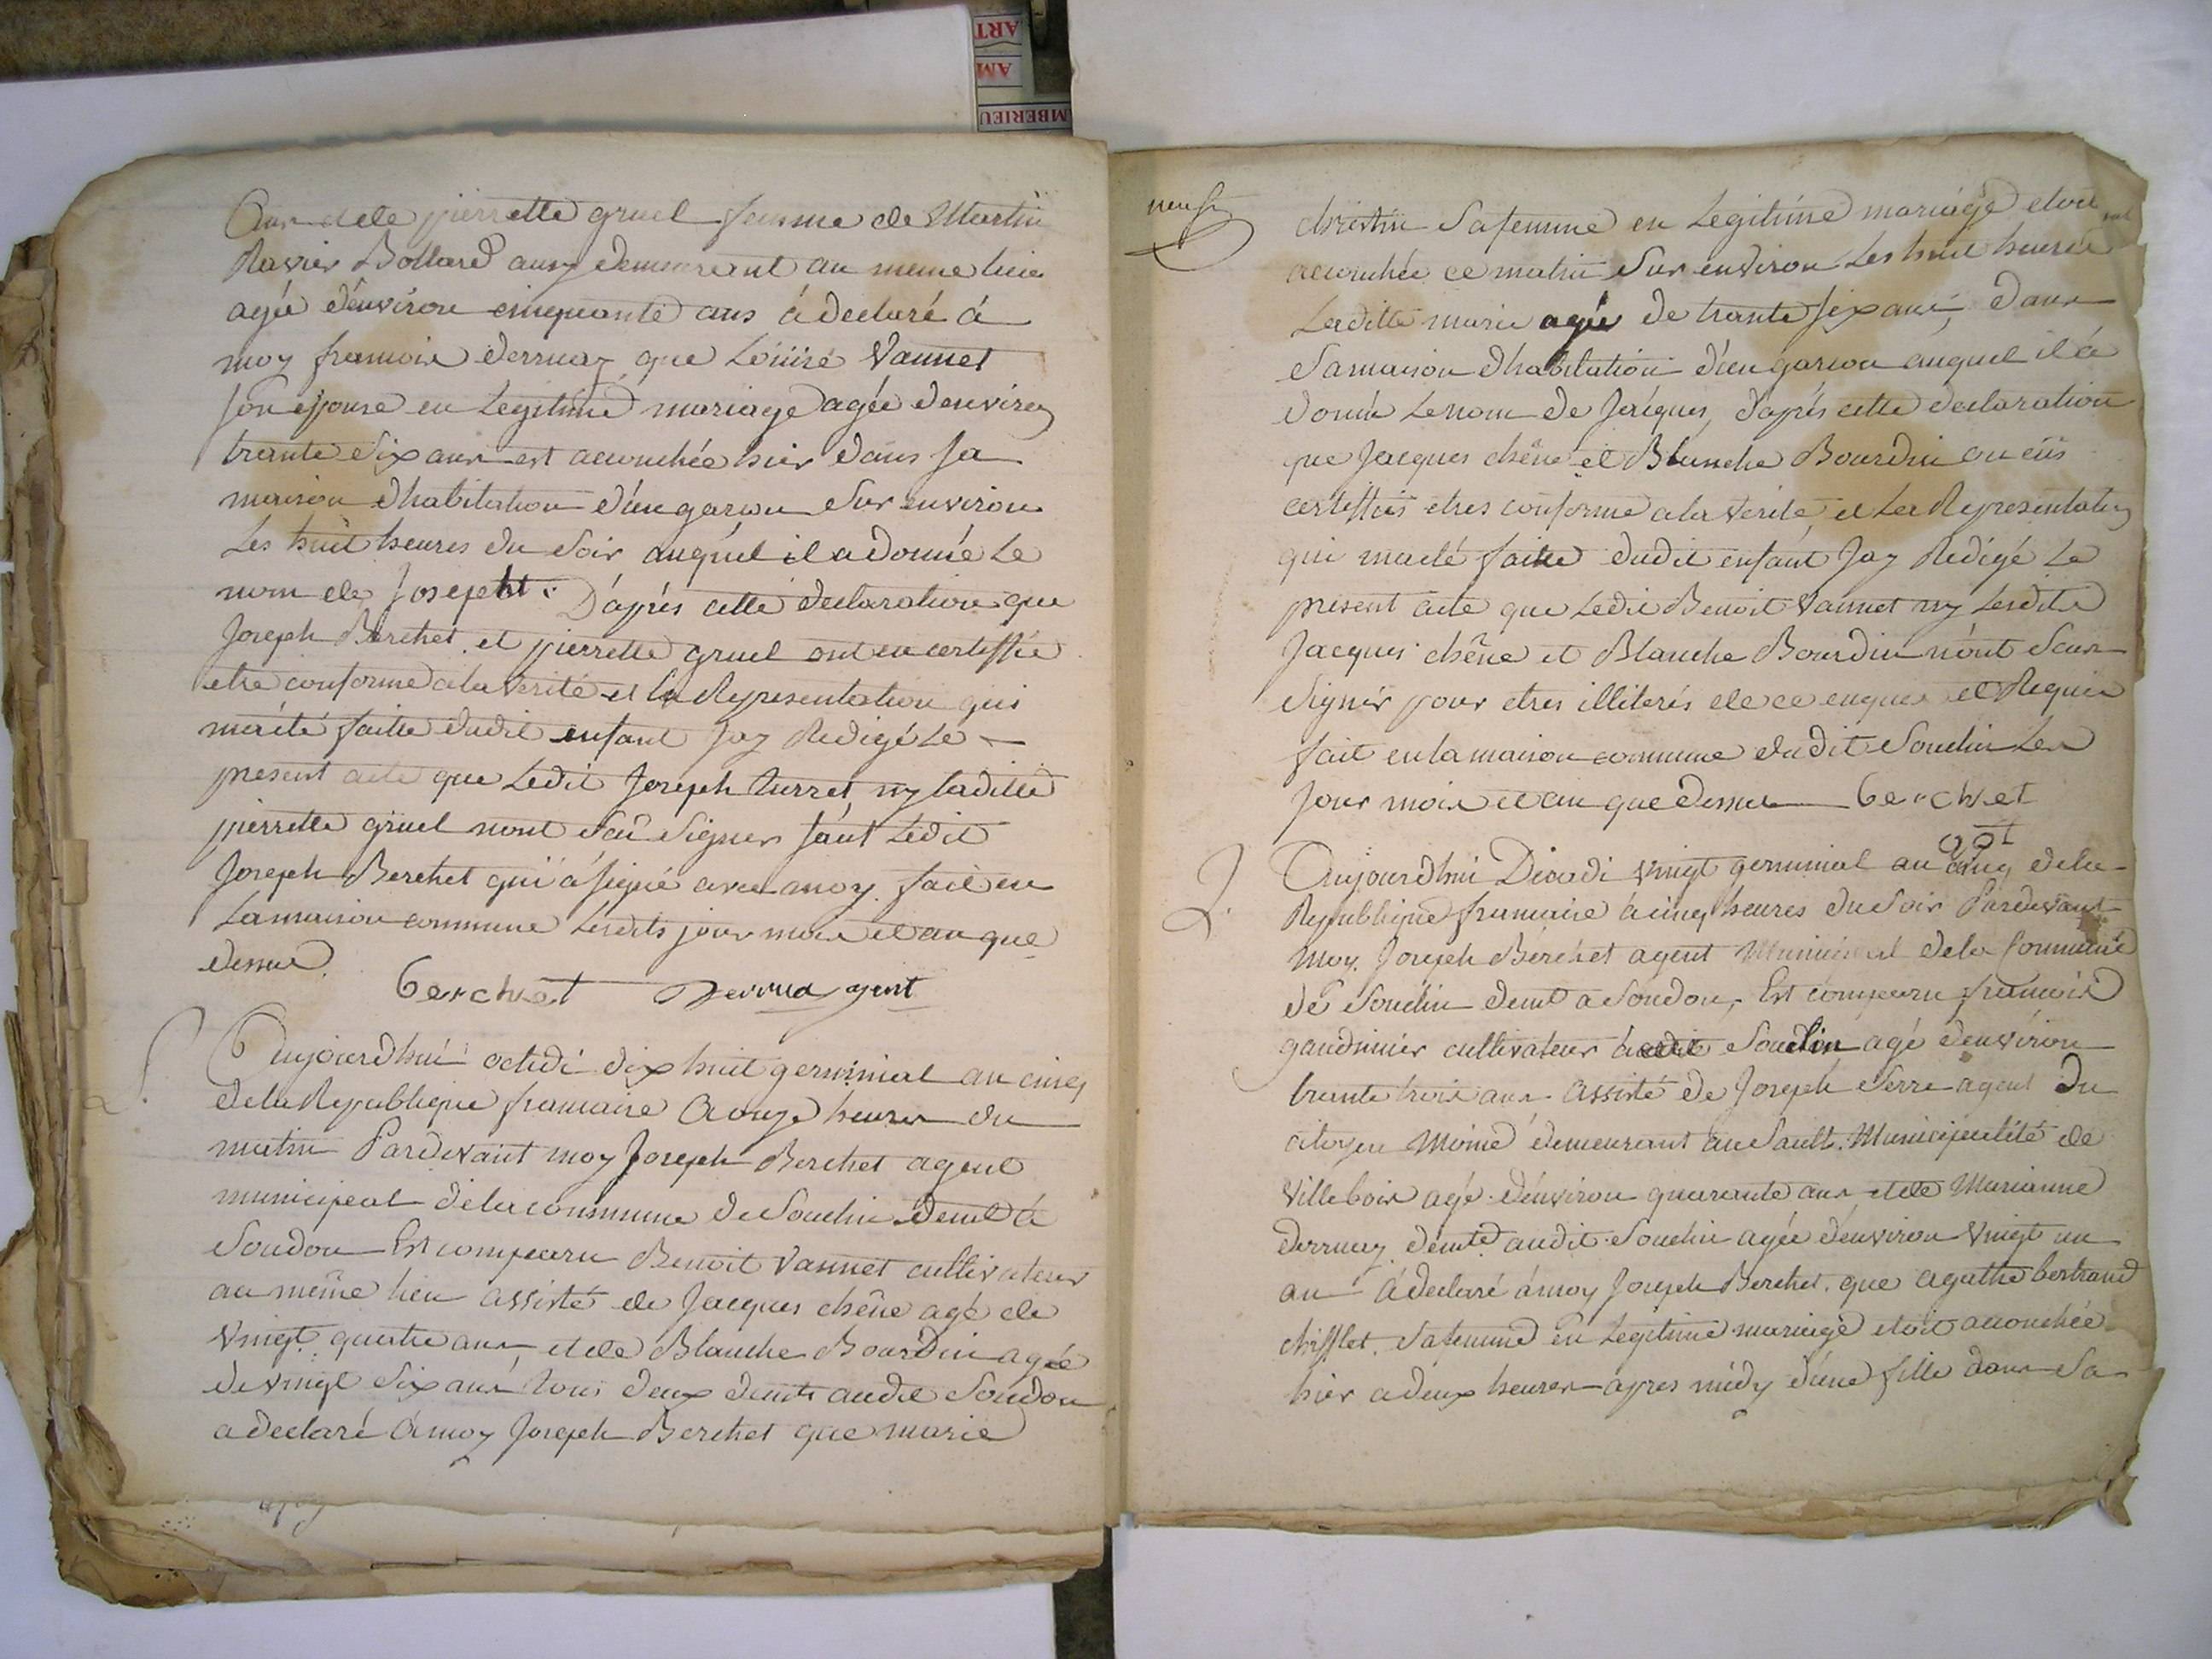 ART
AM
AMBERIEU
Ans et de pierrette gruel femme de Martin
Ravier Bollard aussy demeurant au meme lieu
agée d'environ cinquante ans à declaré à
moy francois derruaz que Loüise Vannet
son epouse en Legitime mariage agée d'environ
trante six ans est accouchée hier dans sa
maison d'habitation d'un garson sur environ
Les huit heures du soir auquel il a donnée Le
nom de Joseph. D'aprés cette declaration que
Joseph Berchet et pierrette gruel ont en certiffié
etre conforme a la verité et la Representation qui
m'a été faitte dudit enfant Jay Redigé Le
present acte que Ledit Joseph turret ny laditte
pierrette gruel n'ont scû signer saut Ledit
Joseph Berchet qui à signé avec moy. fait en
La maison commune Lesdits jour mois et an que
dessus.
berchet derruaz agent
Aujourdhui octidi dix huit germinial an cinq
de la Republique francaise a onze heures du
matin Pardevant moy Joseph Berchet agent
municipal de la commune de Souclin demt à
Soudon Est comparu Benoit Vannet cultivateur
au même lieu assisté de Jacques chêne agé de
vingt quatre ans, et de Blanche Bourdin agée
de vingt six ans tous deux demts audit Soudon
a declaré à moy Joseph Berchet que marie
neuf
christin sa femme en Legitime mariage etoit
accouchée ce matin sur environ Les huit heures
Laditte marie agée de trante six ans, dans
sa maison d'habitation d'un garson auquel il à
donné Le nom de Jacques, d'aprés cette declaration
que Jacques chêne et Blanche Bourdin on eüs
certiffiés etres conforme a la verité et La Representation
qui ma eté faitte dudit enfant Jay Redigé Le
present acte que Ledit Benoit Vannet ny Lesdits
Jacques chêne et Blanche Bourdin n'ont scus
signér pour etres illiterés de ce enquis et Requis
fait en la maison commune dudit Souclin Les
Jour mois et an que dessus berchet
agt
Aujourdhui Decadi vingt germinial an cinq de la
Republique francaise a cinq heures du soir Pardevant
moy Joseph Berchet agent Municipal de la Commune
de Souclin demt a Soudon, Est comparu francois
gaudinier cultivateur audit Souclin agé d'environ
trante trois ans assisté de Joseph Serre agent du
citoyen Moine demeurant au Sault Municipalité de
Villebois agé d'environ quarante ans et de Marianne
derruaz demte audit Souclin agée d'environ vingt un
an à declaré à moy Joseph Berchet que agathe bertrand
chifflet sa femme en Legitime mariage etoit accouchée
hier a deux heures apres midy d'une fille dans sa